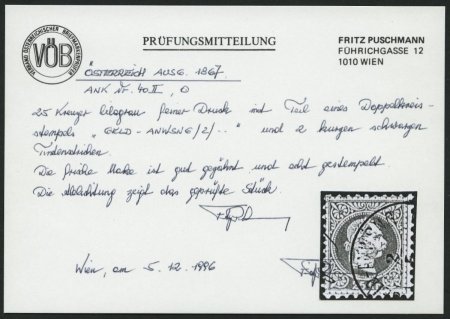 VERBAND ÖSTERREICHISCHER BRIEFMARKENPRÜFER
VÖB
PRÜFUNGSMITTEILUNG
FRITZ PUSCHMANN
FÜHRICHGASSE 12
1010 WIEN
ÖSTERREICH AUSG. 1867
ANK Nr. 40 II, O
25 Kreuzer lilagrau feiner Druck mit Teil eines Doppelkreis-
stempels "GELD-ANWSNG/2/.." und 2 kurzen schwarzen
Tintenstrichen.
Die Marke ist gut gezähnt und echt gestempelt.
Die Ablichtung zeigt das geprüfte Stück.
Wien, am 5.12.1996